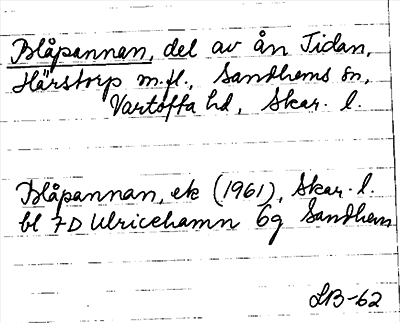 Blåpannan, del av ån Tidan,
Härstorp m.fl., Sandhems sn,
Vartofta hd, Skar. l.
Blåpannan, ek (1961), Skar. l.
bl 7D Ulricehamn 6g Sandhem
LB-62